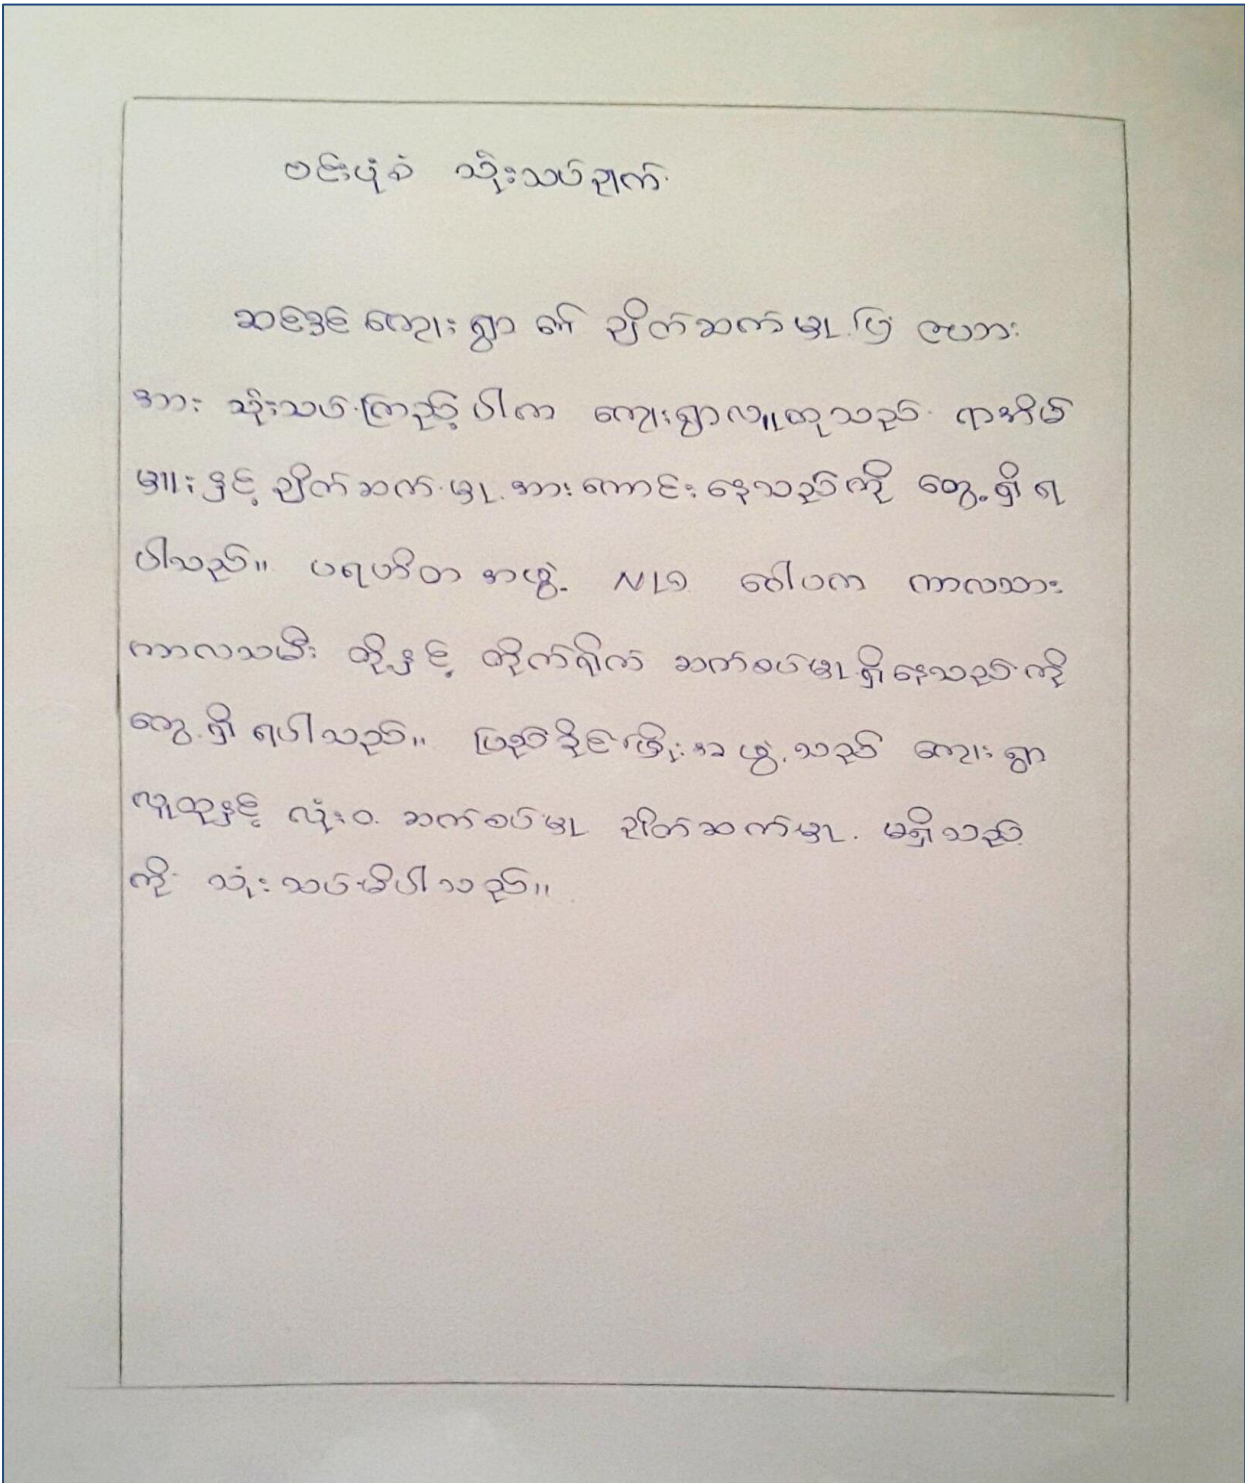 ဗင်းပုံစံ သုံးသပ်ချက်
ဆင်ဒင် ကျေးရွာ ၏ ချိတ်ဆက်မှု ပြ ဇယား
အား သုံးသပ်ကြည့်ပါက ကျေးရွာလူထုသည် ရာအိမ်
မှူး နှင့် ချိတ်ဆက်မှု အားကောင်းနေသည်ကို တွေ့ရှိရ
ပါသည်။ ပရဟိတ အဖွဲ့ NLD ဂေါပက ကာလသား
ကာလသမီး တို့နှင့် တိုက်ရိုက် ဆက်စပ်မှု ရှိနေသည်ကို
တွေ့ရှိ ရပါသည်။ ပြည်ခိုင်ဖြိုးအဖွဲ့သည် ကျေးရွာ
လူထုနှင့် လုံးဝ ဆက်စပ်မှု ချိတ်ဆက်မှု မရှိသည်
ကို သုံးသပ်မိပါသည်။